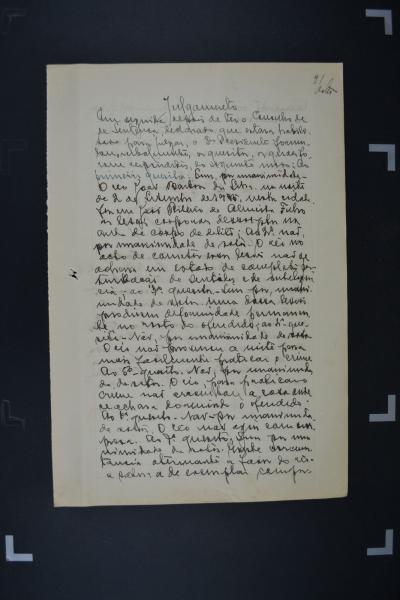 Julgamento
Em seguida depois de ter o Conselho de
de Sentença declarado que estava habili-
tado para julgar, o Dr. Presidente formu-
lou os quesitos,
respondidos do seguinte modo: Ao
primeiro quesito: Sim, por unanimidade.
O réo José Barbosa da Silva, na noite
de 2 de Setembro de nesta cidade,
fez em José Ribeiro de Almeida Filho
as lesões corporaes descriptas no
auto de corpo de delito; Ao 2º não,
por unanimidade de votos. O réo no
acto de cometter essas lesões não se
achava em estado de completa per-
turbação de sentidos e de intelligen-
cia; ao 3º quesito - Sim - por unani-
midade de votos uma dessas lesões
produziu deformidade permanen-
te no rosto do offendido; ao 4º que-
sito - Não, por unanimidade de votos
O réo não procurou a noite para
mais facilmente praticar o crime
Ao 5º quesito. Não, por unanimida-
de de votos. O réo, para praticar o
crime não a casa onde
se achava o offendido.
Ao 6º quesito - Não - por unanimida-
de de votos. O réo não agiu com sur-
presa. Ao 7º quesito, Sim por una-
nimidade de votos. Existe circum-
stancia attenuante a favor do réo
a de exemplar compor-